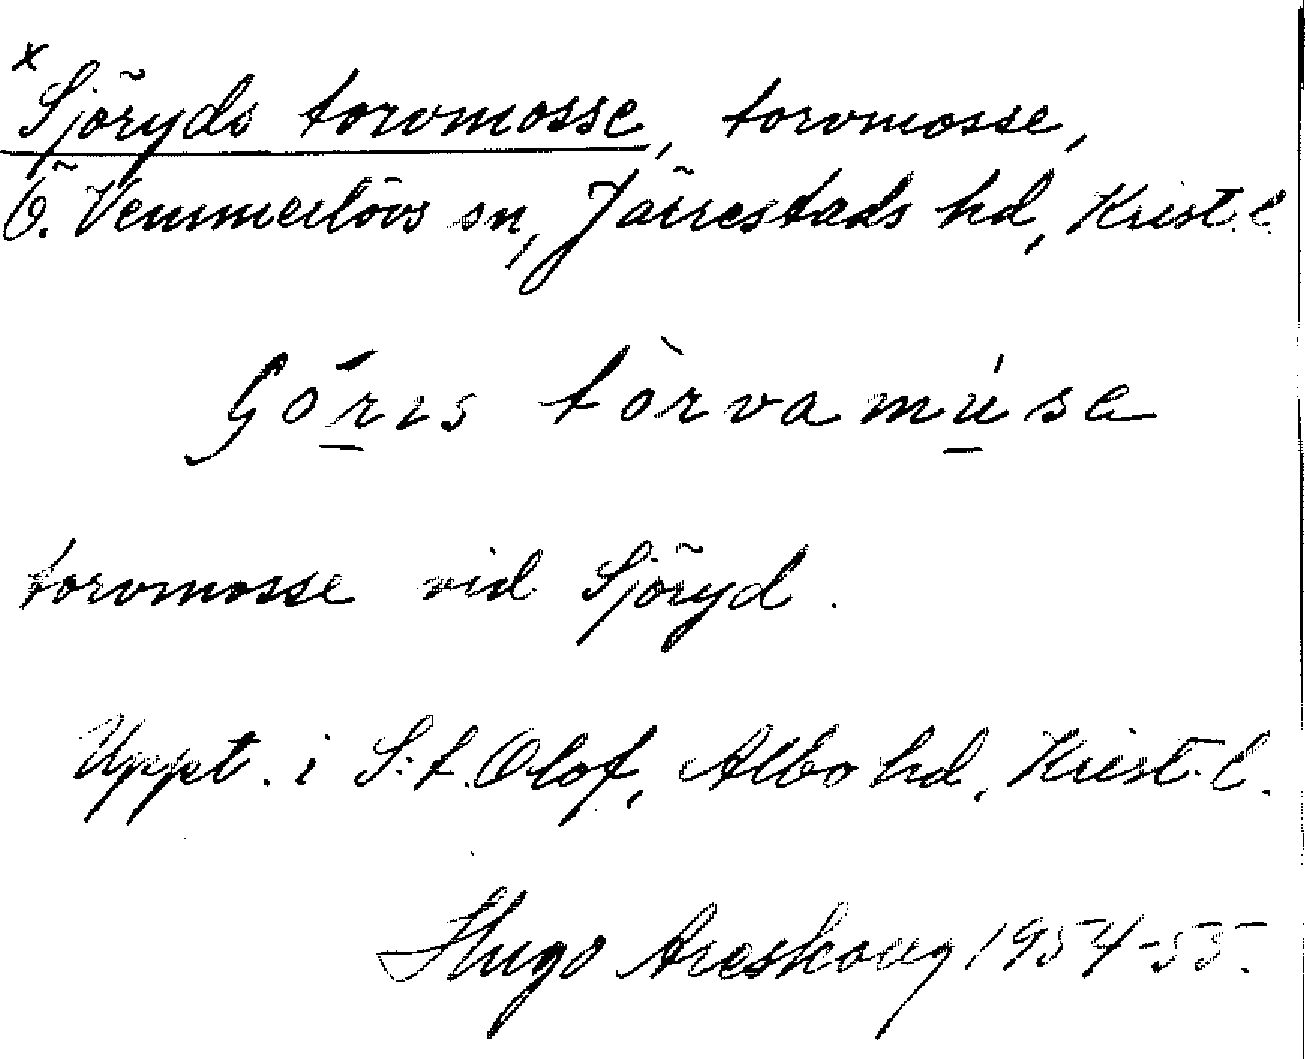 x Sjöryds torvmosse, torvmosse,
Ö. Vemmerlövs sn, Järrestads hd, Krist. l.
Góris tòrvamúsa
torvmosse vid Sjöryd.
Uppt. i S:t. Olof, Albo hd, Krist. l.
Hugo Areskoug 1954-55.